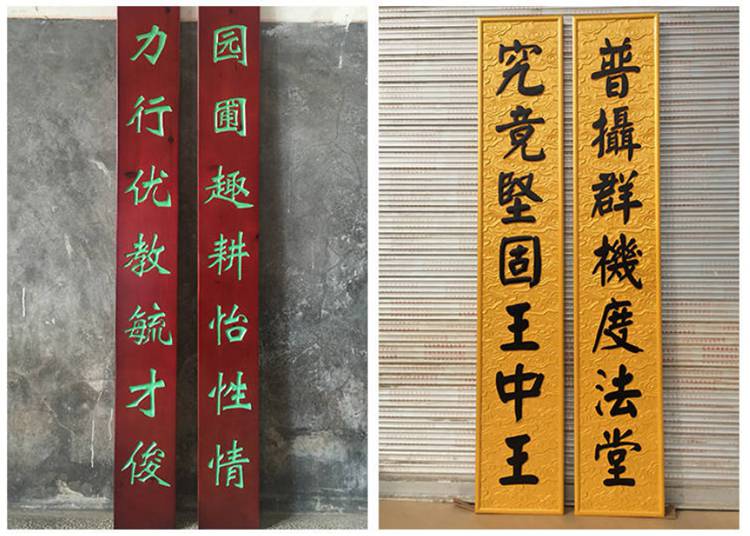 园圃趣耕怡性情
力行优教毓才俊
普攝群機度法堂
究竟堅固王中王